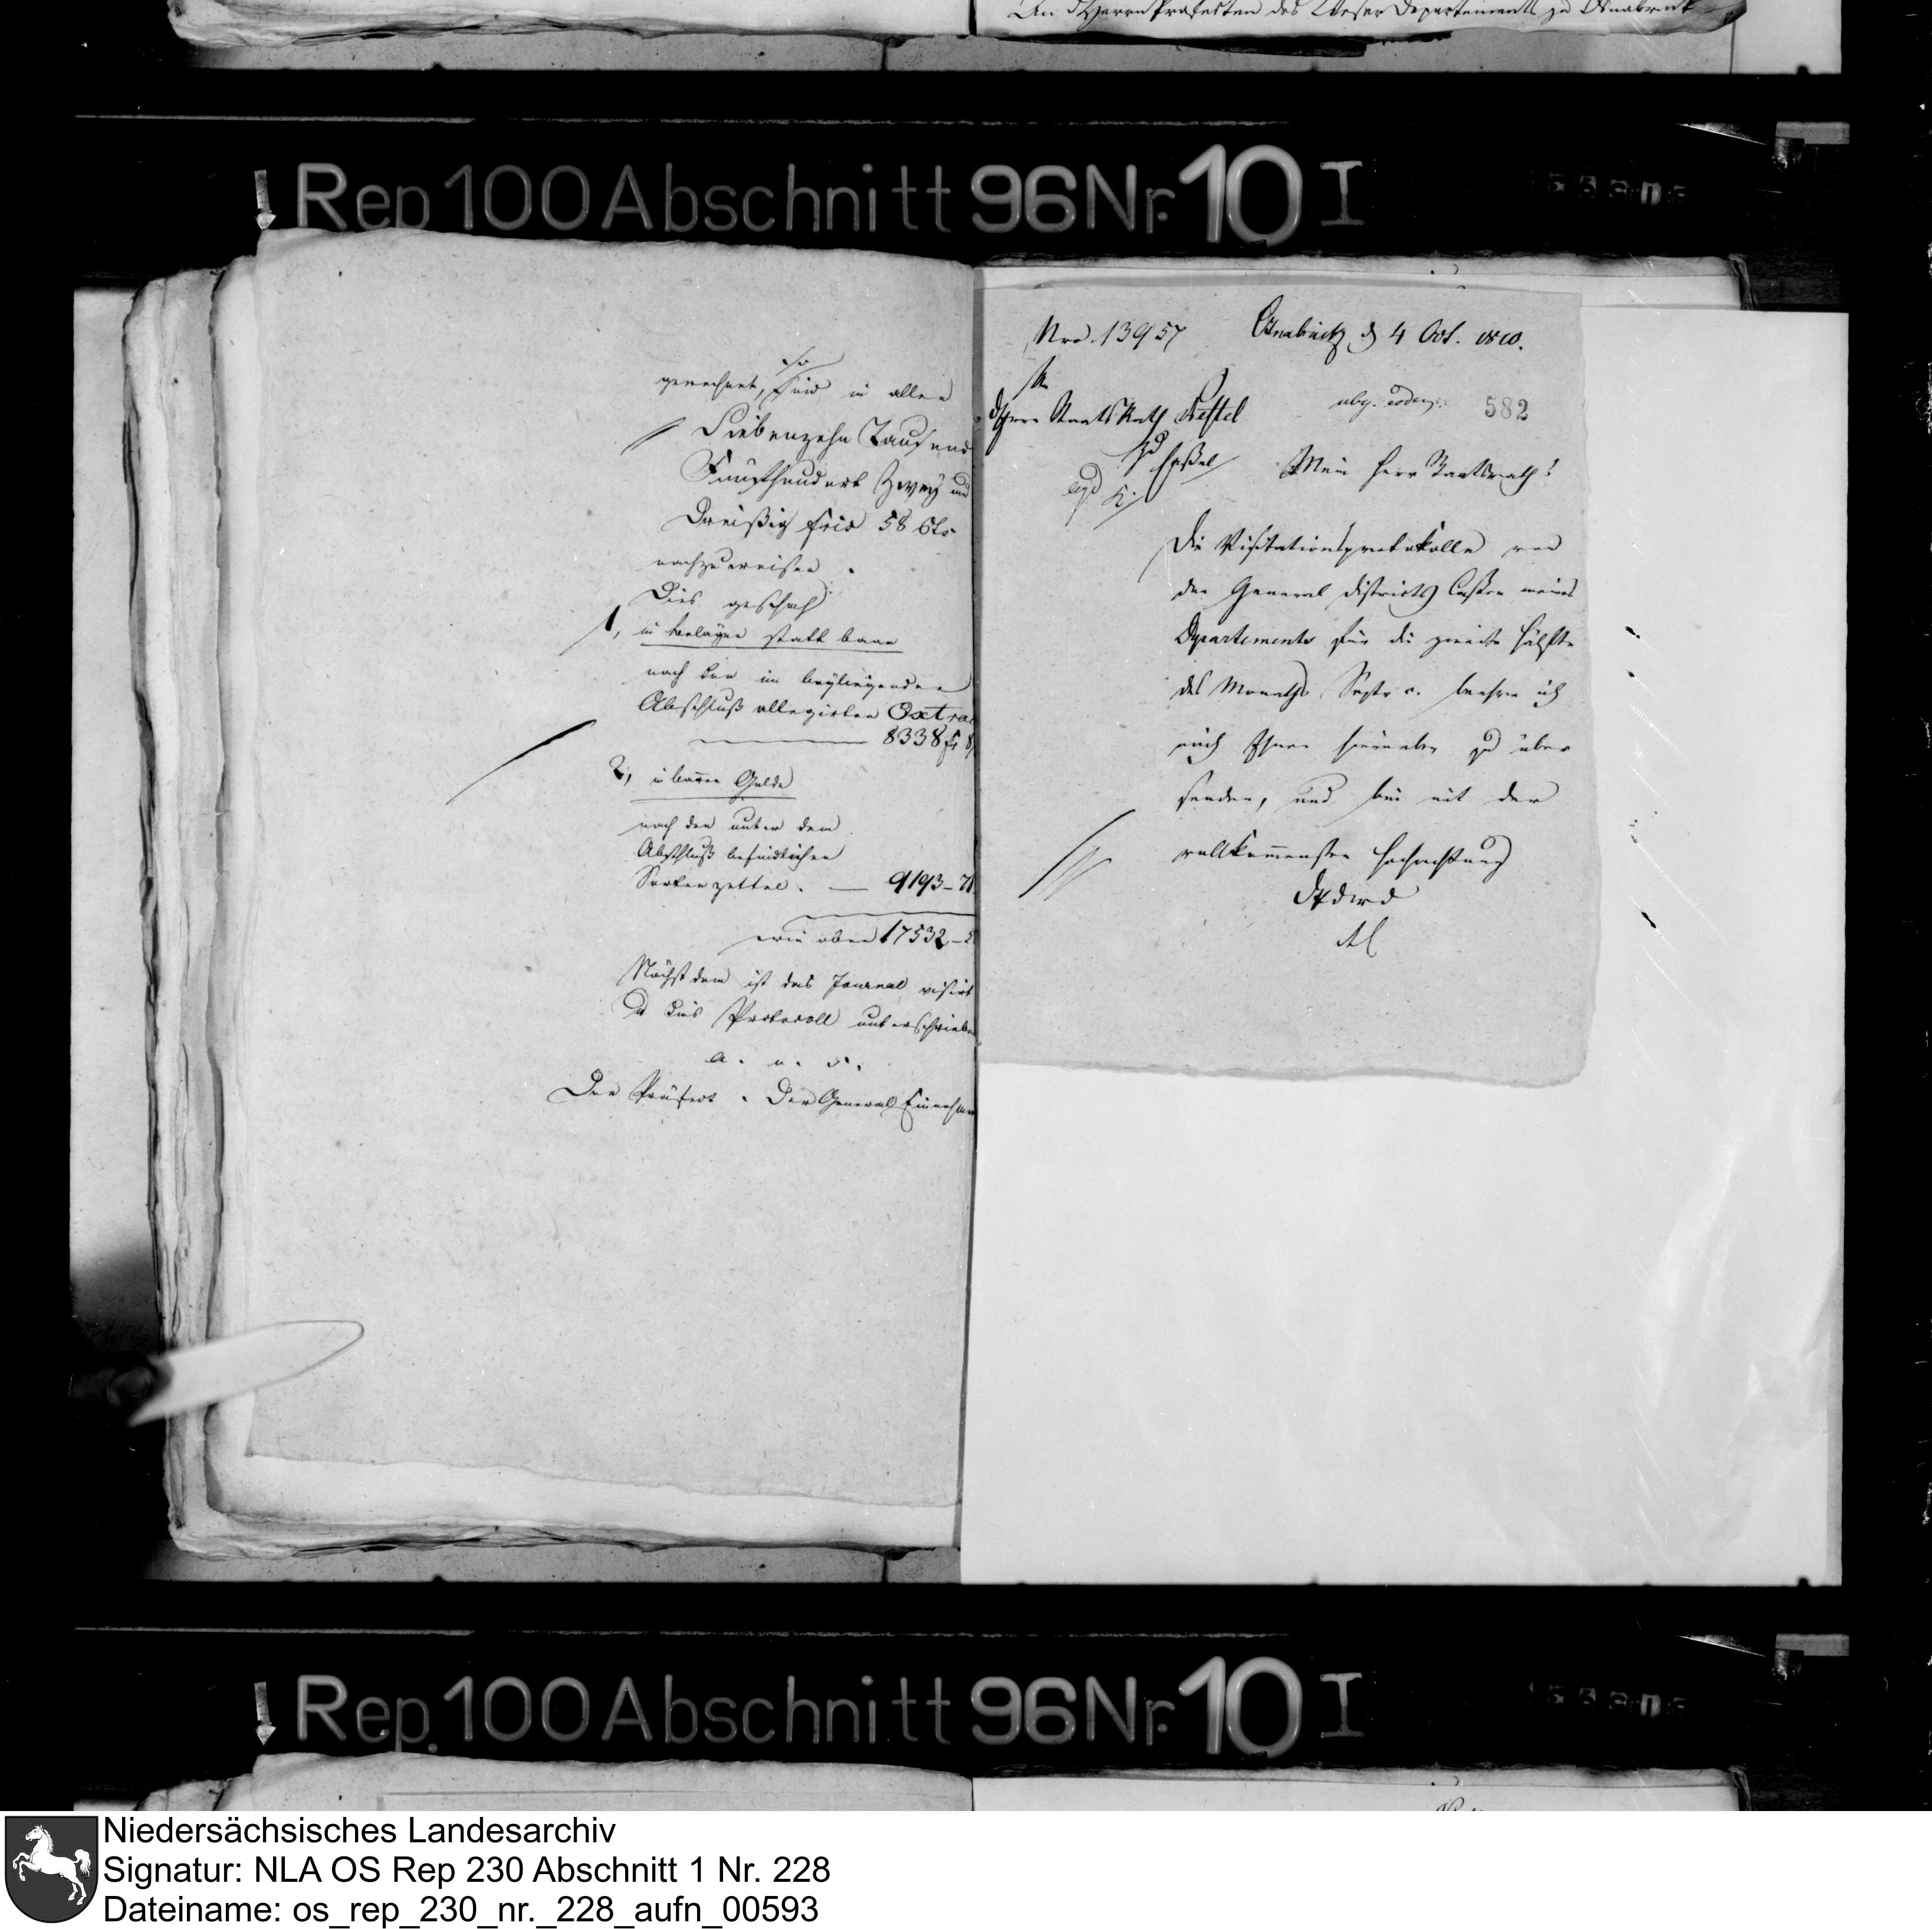 An dHerrn Präfecten des Weser Departements zu Osnabrück
Rep 100 Abschnitt 96 Nr. 10 I
so
gerechnet, sind in allen
Siebenzehn Tausend
Fünfhundert Zwey und
Dreißig frcs 58 Cts
nachzuweisen.
Dies geschah
1, in Belägen statt baar
nach den im beyliegenden
Abschluß allegirten Extra
8338 fr 8
2, in baarem Gelde
nach den unter dem
Abschluß befindlichen
Sortenzettel. — 9193 – 7
wie oben 17532 – 5
Nächstdem ist das Journal visirt
u dies Protocoll unterschrieben
a. u. s.
Der Präfect. Der General Einnehmer
Nro. 13957 Osnabrück d 4 Oct. 1810.
An
dHerrn StaatsRath
abg. eodem 582
zu Cassel
Mein Herr Staatsrath!
Die Visitationsprotokolle von
den General districts Cassen meines
Departements für die zweite Hälfte
des Monaths Septr c. beehre ich
mich Ihnen hieneben zu über
senden, und bin mit der
vollkommensten Hochachtung
Rep. 100 Abschnitt 96 Nr. 10 I
Niedersächsisches Landesarchiv
Signatur: NLA OS Rep 230 Abschnitt 1 Nr. 228
Dateiname: os_rep_230_nr._228_aufn_00593